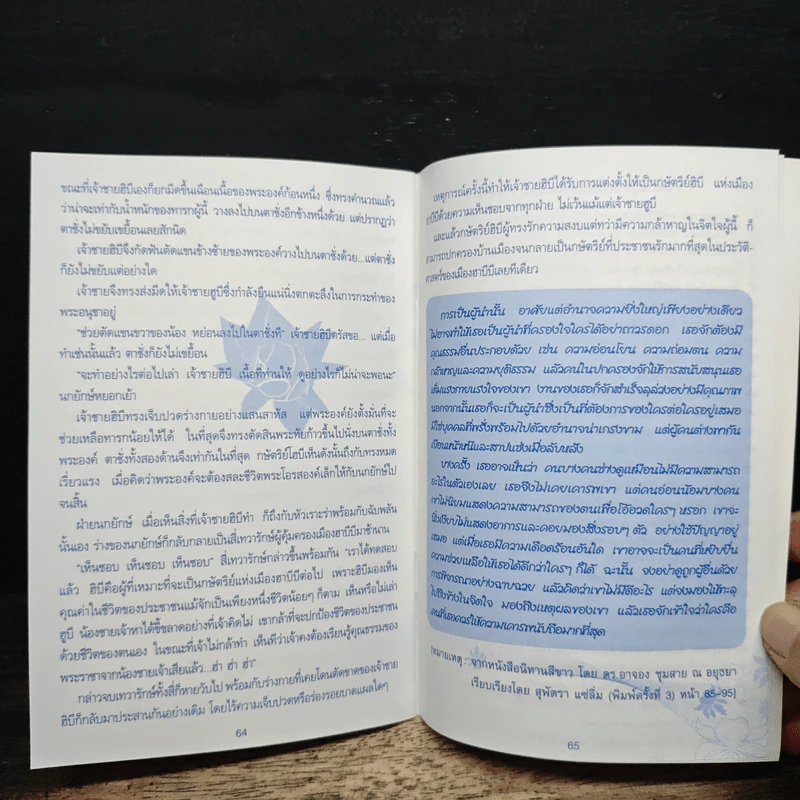 ขณะที่เจ้าชายฮิบีเองก็ยกมีดขึ้นเฉือนเนื้อของพระองค์ก้อนหนึ่ง ซึ่งทรงคำนวณแล้ว
ว่าน่าจะเท่ากับน้ำหนักของทารกผู้นี้ วางลงไปบนตาชั่งอีกข้างหนึ่งด้วย แต่ปรากฏว่า
ตาชั่งไม่ขยับเขยื้อนเลยสักนิด
เจ้าชายฮิบีจึงกัดฟันตัดแขนข้างซ้ายของพระองค์วางไปบนตาชั่งด้วย...แต่ตาชั่ง
ก็ยังไม่ขยับแต่อย่างใด
เจ้าชายจึงทรงส่งมีดให้เจ้าชายฮูบีซึ่งกำลังยืนแน่นิ่งตกตะลึงในการกระทำของ
พระอนุชาอยู่
"ช่วยตัดแขนขวาของน้อง หย่อนลงไปในตาชั่งที" เจ้าชายฮิบีตรัสขอ... แต่เมื่อ
ทำเช่นนั้นแล้ว ตาชั่งก็ยังไม่เขยื้อน
"จะทำอย่างไรต่อไปเล่า เจ้าชายฮิบี เนื้อที่ท่านให้ ดูอย่างไรก็ไม่น่าจะพอนะ"
นายักษ์หยอกเย้า
เจ้าชายฮิบีทรงเจ็บปวดร่างกายอย่างแสนสาหัส แต่พระองค์ยังตั้งมั่นที่จะ
ช่วยเหลือทารกน้อยให้ได้ ในที่สุดจึงทรงตัดสินพระทัยก้าวขึ้นไปนั่งบนตาชั่งทั้ง
พระองค์ ตาชั่งทั้งสองด้านจึงเท่ากันในที่สุด กษัตริย์โฮบีเห็นดังนั้นถึงกับทรงหมด
เรี่ยวแรง เมื่อคิดว่าพระองค์จะต้องสละชีวิตพระโอรสองค์เล็กให้กับนกยักษ์ไป
จนสิ้น
ฝ่ายนกยักษ์ เมื่อเห็นสิ่งที่เจ้าชายฮิบีทำ ก็ถึงกับหัวเราะร่าพร้อมกับฉับพลัน
นั้นเอง ร่างของนกยักษ์ก็กลับกลายเป็นสี่เทวารักษ์ผู้คุ้มครองเมืองฮาบีบีมาช้านาน
"เห็นชอบ เห็นชอบ เห็นชอบ" สี่เทวารักษ์กล่าวขึ้นพร้อมกัน "เราได้ทดสอบ
แล้ว ฮิบีคือผู้ที่เหมาะที่จะเป็นกษัตริย์แห่งเมืองฮาบีบีต่อไป เพราะฮิบีมองเห็น
คุณค่าในชีวิตของประชาชนแม้จักเป็นเพียงหนึ่งชีวิตน้อยๆ ก็ตาม เห็นหรือไม่เล่า
ฮูบี น้องชายเจ้าหาได้ขี้ขลาดอย่างที่เจ้าคิดไม่ เขากล้าที่จะปกป้องชีวิตของประชาชน
ด้วยชีวิตของตนเอง ในขณะที่เจ้าไม่กล้าทำ เห็นทีว่าเจ้าคงต้องเรียนรู้คุณธรรมของ
พระราชาจากน้องชายเจ้าเสียแล้ว...ฮ่า ฮ่า ฮ่า"
กล่าวจบเทวารักษ์ทั้งสี่ก็หายวับไป พร้อมกับร่างกายที่เคยโดนตัดขาดของเจ้าชาย
ฮิบีก็กลับมาประสานกันอย่างเดิม โดยไร้ความเจ็บปวดหรือร่องรอยบาดแผลใดๆ
64
เหตุการณ์ครั้งนี้ทำให้เจ้าชายฮิบีได้รับการแต่งตั้งให้เป็นกษัตริย์ฮิบี แห่งเมือง
ฮาบีบีด้วยความเห็นชอบจากทุกฝ่าย ไม่เว้นแม้แต่เจ้าชายฮูบี
และแล้วกษัตริย์ฮิบีผู้ทรงรักความสงบแต่ทว่ามีความกล้าหาญในจิตใจผู้นี้ ก็
สามารถปกครองบ้านเมืองจนกลายเป็นกษัตริย์ที่ประชาชนรักมากที่สุดในประวัติ-
ศาสตร์ของเมืองฮาบีบีเลยทีเดียว
การเป็นผู้นำนั้น อาศัยแต่อำนาจความยิ่งใหญ่เพียงอย่างเดียว
ไม่อาจทำให้เธอเป็นผู้นำที่ครองใจใครได้อย่างถาวรดอก เธอจักต้องมี
คุณธรรมอื่นประกอบด้วย เช่น ความอ่อนโยน ความถ่อมตน ความ
กล้าหาญและความยุติธรรม แล้วคนในปกครองจักให้การสนับสนุนเธอ
เต็มแรงกายแรงใจของเขา งานของเธอก็จักสำเร็จลุล่วงอย่างมีคุณภาพ
นอกจากนั้นเธอก็จะเป็นผู้นำซึ่งเป็นที่ต้องการของใครต่อใครอยู่เสมอ
มิใช่บุคคลที่พรั่งพร้อมไปด้วยอำนาจน่าเกรงขาม แต่ผู้คนต่างพากัน
เบือนหน้าหนีและสาปแช่งเมื่อลับหลัง
บางครั้ง เธออาจเห็นว่า คนบางคนช่างดูเหมือนไม่มีความสามารถ
อะไรในตัวเองเลย เธอจึงไม่เคยเคารพเขา แต่คนอ่อนน้อมบางคน
เขาไม่นิยมแสดงความสามารถของตนเพื่อโอ้อวดใครๆ หรอก เขาจะ
นิ่งเงียบไม่แสดงอาการและคอยมองสิ่งรอบๆ ตัว อย่างใช้ปัญญาอยู่
เสมอ แต่เมื่อเธอมีความเดือดร้อนอันใด เขาอาจจะเป็นคนที่หยิบยื่น
ความช่วยเหลือให้เธอได้ดีกว่าใครๆ ก็ได้ ฉะนั้น จงอย่าดูถูกผู้อื่นด้วย
การพิจารณาอย่างฉาบฉวย แล้วคิดว่าเขาไม่มีดีอะไร แต่จงมองให้ทะลุ
ไปถึงข้างในจิตใจ มองถึงเหตุผลของเขา แล้วเธอจักเข้าใจว่าใครคือ
คนที่เธอควรให้ความเคารพนับถือมากที่สุด
[หมายเหตุ : จากหนังสือนิทานสีขาว โดย ดร.อาจอง ชุมสาย ณ อยุธยา
เรียบเรียงโดย สุพัตรา แซ่ลิ่ม (พิมพ์ครั้งที่ 3) หน้า 85-95]
65